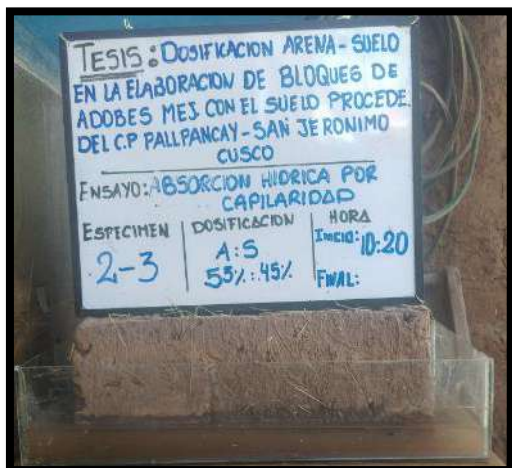 TESIS: DOSIFICACION ARENA-SUELO
EN LA ELABORACION DE BLOQUES DE
ADOBES MEJ CON EL SUELO PROCEDE.
DEL C.P PALLPANCAY-SAN JERONIMO
CUSCO
ENSAYO: ABSORCION HIDRICA POR
CAPILARIDAD
ESPECIMEN
2-3
DOSIFICACION
A:S
55%:45%
HORA
INICIO: 10:20
FINAL: